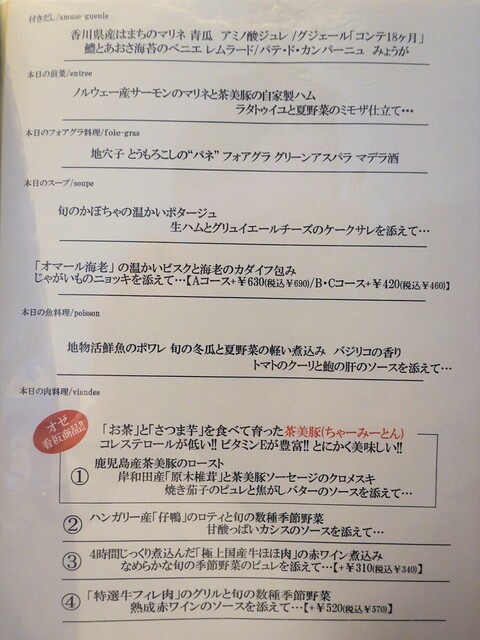 付きだし/amuse-gueule
香川県産はまちのマリネ 青瓜 アミノ酸ジュレ /グジェール「コンテ18ヶ月」
鱧とあおさ海苔のベニエ レムラード/パテ・ド・カンパーニュ みょうが
本日の前菜/entree
ノルウェー産サーモンのマリネと茶美豚の自家製ハム
ラタトゥイユと夏野菜のミモザ仕立て…
本日のフォアグラ料理/foie-gras
地穴子 とうもろこしの"パネ" フォアグラ グリーンアスパラ マデラ酒
本日のスープ/soupe
旬のかぼちゃの温かいポタージュ
生ハムとグリュイエールチーズのケークサレを添えて…
「オマール海老」の温かいビスクと海老のカダイフ包み
じゃがいものニョッキを添えて…【Aコース+￥630(税込￥690)/B・Cコース+￥420(税込￥460)】
本日の魚料理/poisson
地物活鮮魚のポワレ 旬の冬瓜と夏野菜の軽い煮込み バジリコの香り
トマトのクーリと鮑の肝のソースを添えて…
本日の肉料理/viandes
オゼ
看板商品!!
「お茶」と「さつま芋」を食べて育った茶美豚(ちゃーみーとん)
コレステロールが低い!! ビタミンEが豊富!! とにかく美味しい!!
① 鹿児島産茶美豚のロースト
岸和田産「原木椎茸」と茶美豚ソーセージのクロメスキ
焼き茄子のピュレと焦がしバターのソースを添えて…
② ハンガリー産「仔鴨」のロティと旬の数種季節野菜
甘酸っぱいカシスのソースを添えて…
③ 4時間じっくり煮込んだ「極上国産牛ほほ肉」の赤ワイン煮込み
なめらかな旬の季節野菜のピュレを添えて…【+￥310(税込￥340)】
④ 「特選牛フィレ肉」のグリルと旬の数種季節野菜
熟成赤ワインのソースを添えて…【+￥520(税込￥570)】